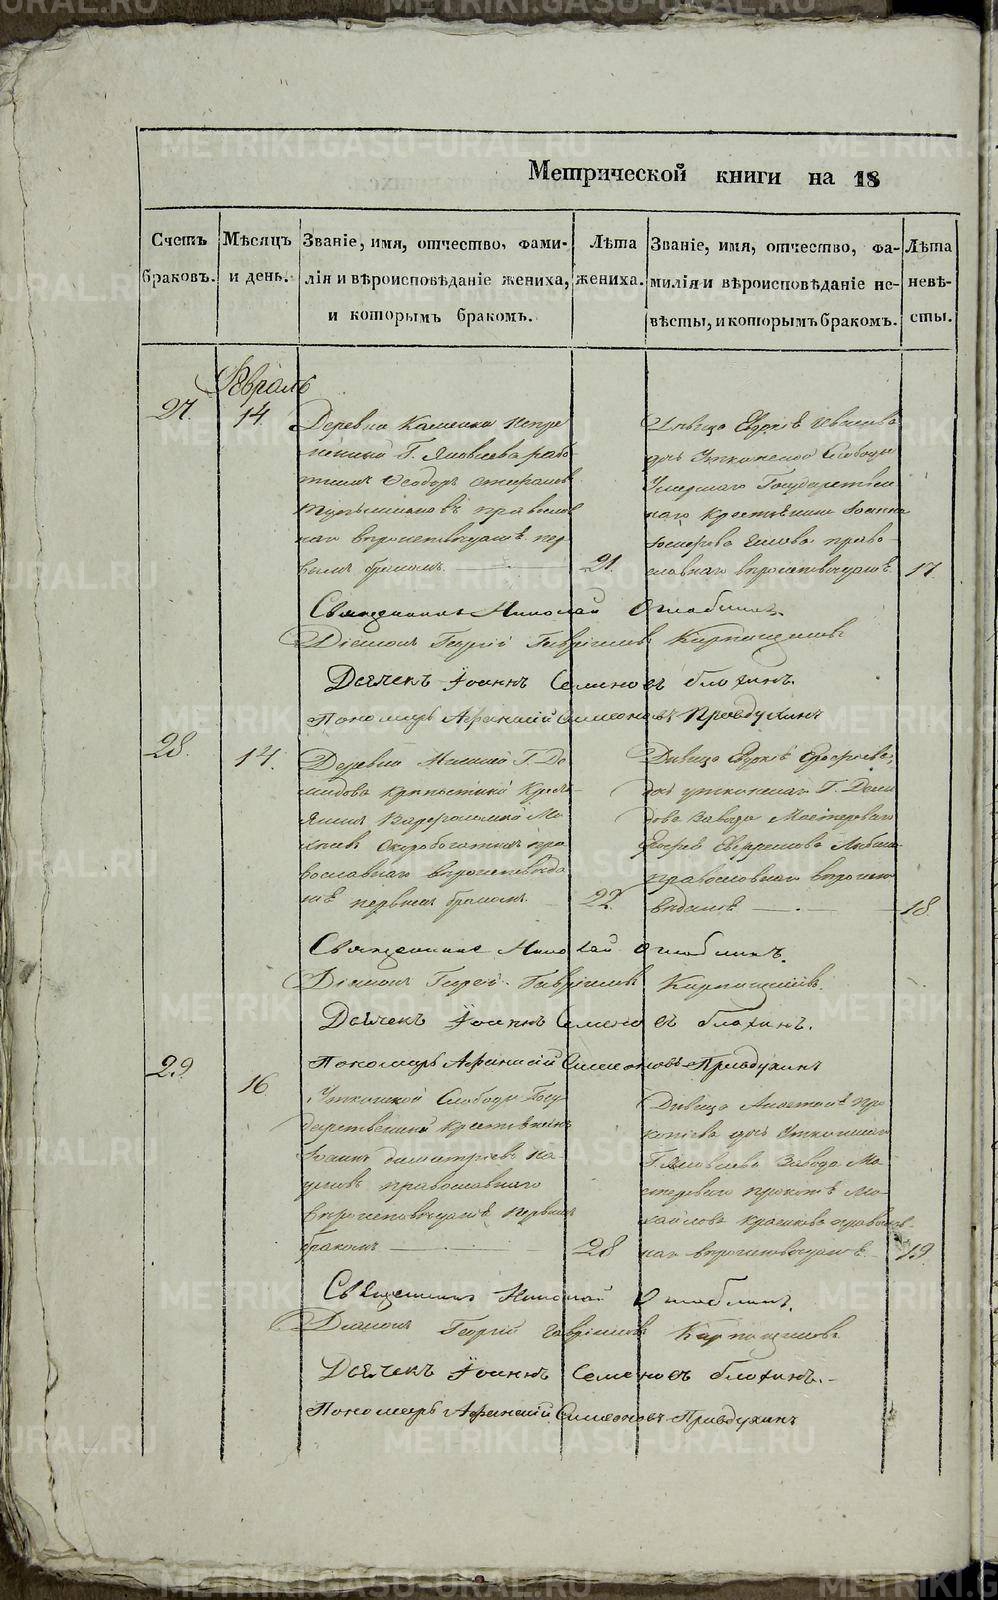 Метрической книги на 18
Счетъ браковъ.
Мѣсяцъ и день.
Званіе, имя, отчество, фами-
лія и вѣроисповѣданіе жениха,
и которымъ бракомъ.
Лѣта
жениха.
Званіе, имя, отчество, фа-
милія и вѣроисповѣданіе не-
вѣсты, и которымъ бракомъ.
Лѣта
невѣ-
сты.
Февраль
27. 14.
Деревни Каменки
Г. Яковлева рабо-
Ѳеодоръ
православ
наго вѣроисповѣданія пер
вымъ бракомъ. 21.
Дѣвица Евдокія Иванова
дочь Уткинской Слободы
Умершаго Государствен
наго крестьянина Іоанна
право-
славнаго вѣроисповѣданія 17
Священникъ Николай Оглоблинъ.
Діаконъ Георгій Гавріиловъ
Дьячекъ Іоаннъ Семеновъ блохинъ.
Пономарь Афанасій Симеоновъ Правдухинъ
28. 14.
Деревни Г. Де
мидова Крѣпостной Крест
янинъ Варфоломей
Скоробогатовъ пра
вославнаго вѣроисповѣда
нія первымъ бракомъ. 22.
Дѣвица Евдокія Ерофѣева,
дочь уткинскаго Г. Деми
дова Завода Мастероваго
православнаго вѣроиспо
вѣданія 18.
Священникъ Николай Оглоблинъ.
Діаконъ Георгій Гавріиловъ
Дьячекъ Іоаннъ Семеновъ блохинъ.
Пономарь Афанасій Симеоновъ Правдухинъ
29 16.
Уткинской Слободы Госу-
дарственной крестьянинъ
Іоаннъ Димитріевъ
православнаго
вѣроисповѣданія первымъ
бракомъ 28
Дѣвица Анастасія Про
копіева дочь Уткинскаго
Г. Яковлева Завода Ма
стероваго Прокопія Ми
хайлова православ-
наго вѣроисповѣданія. 19.
Священникъ Николай Оглоблинъ.
Діаконъ Георгій Гавріиловъ
Дьячекъ Іоаннъ Семеновъ блохинъ.
Пономарь Афанасій Симеоновъ Правдухинъ
METRIKI.GASO-URAL.RU